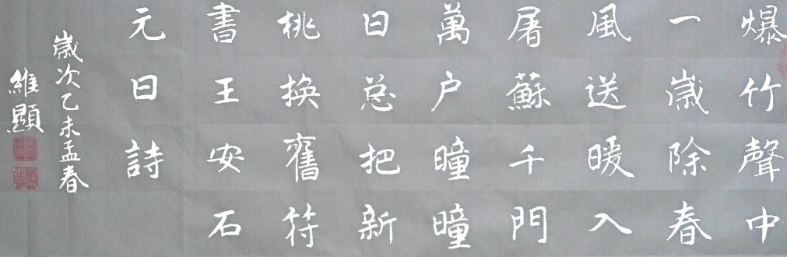 爆竹聲中
一歲除春
風送暖入
屠蘇千門
萬户曈曈
日总把新
桃換舊符
書王安石
元日詩
歲次乙未孟春
維顯